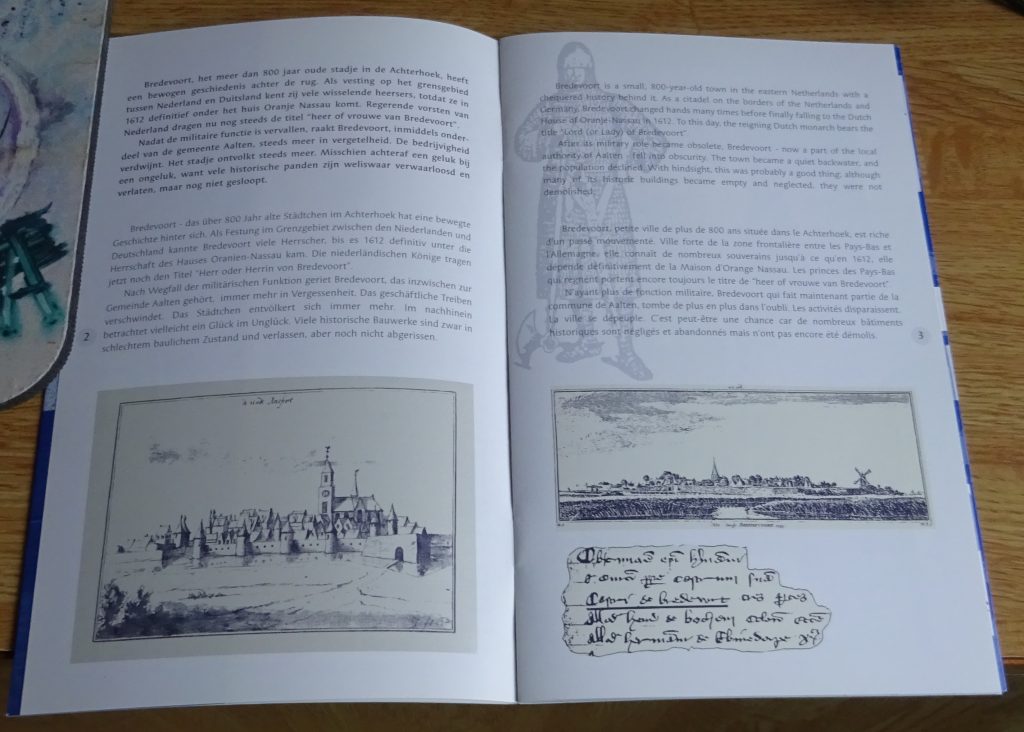 Bredevoort, het meer dan 800 jaar oude stadje in de Achterhoek, heeft
een bewogen geschiedenis achter de rug. Als vesting op het grensgebied
tussen Nederland en Duitsland kent zij vele wisselende heersers, totdat ze in
1612 definitief onder het huis Oranje Nassau komt. Regerende vorsten van
Nederland dragen nu nog steeds de titel "heer of vrouwe van Bredevoort".
Nadat de militaire functie is vervallen, raakt Bredevoort, inmiddels onder-
deel van de gemeente Aalten, steeds meer in vergetelheid. De bedrijvigheid
verdwijnt. Het stadje ontvolkt steeds meer. Misschien achteraf een geluk bij
een ongeluk, want vele historische panden zijn weliswaar verwaarloosd en
verlaten, maar nog niet gesloopt.
Bredevoort - das über 800 Jahr alte Städtchen im Achterhoek hat eine bewegte
Geschichte hinter sich. Als Festung im Grenzgebiet zwischen den Niederlanden und
Deutschland kannte Bredevoort viele Herrscher, bis es 1612 definitiv unter die
Herrschaft des Hauses Oranien-Nassau kam. Die niederländischen Könige tragen
jetzt noch den Titel "Herr oder Herrin von Bredevoort".
Nach Wegfall der militärischen Funktion geriet Bredevoort, das inzwischen zur
Gemeinde Aalten gehört, immer mehr in Vergessenheit. Das geschäftliche Treiben
verschwindet. Das Städtchen entvölkert sich immer mehr. Im nachhinein
betrachtet vielleicht ein Glück im Unglück. Viele historische Bauwerke sind zwar in
schlechtem baulichem Zustand und verlassen, aber noch nicht abgerissen.
2
Bredevoort is a small, 800-year-old town in the eastern Netherlands with a
chequered history behind it. As a citadel on the borders of the Netherlands and
Germany, Bredevoort changed hands many times before finally falling to the Dutch
House of Oranje-Nassau in 1612. To this day, the reigning Dutch monarch bears the
title "Lord (or Lady) of Bredevoort".
After its military role became obsolete, Bredevoort - now a part of the local
authority of Aalten - fell into obscurity. The town became a quiet backwater, and
the population declined. With hindsight, this was probably a good thing; although
many of its historic buildings became empty and neglected, they were not
demolished.
Bredevoort, petite ville de plus de 800 ans située dans le Achterhoek, est riche
d'un passé mouvementé. Ville forte de la zone frontalière entre les Pays-Bas et
l'Allemagne, elle connaît de nombreux souverains jusqu'à ce qu'en 1612, elle
dépende définitivement de la Maison d'Orange Nassau. Les princes des Pays-Bas
qui règnent portent encore toujours le titre de "heer of vrouwe van Bredevoort".
N'ayant plus de fonction militaire, Bredevoort qui fait maintenant partie de la
commune de Aalten, tombe de plus en plus dans l'oubli. Les activités disparaissent.
La ville se dépeuple. C'est peut-être une chance car de nombreux bâtiments
historiques sont négligés et abandonnés mais n'ont pas encore été démolis.
3
de bredevort
de
de